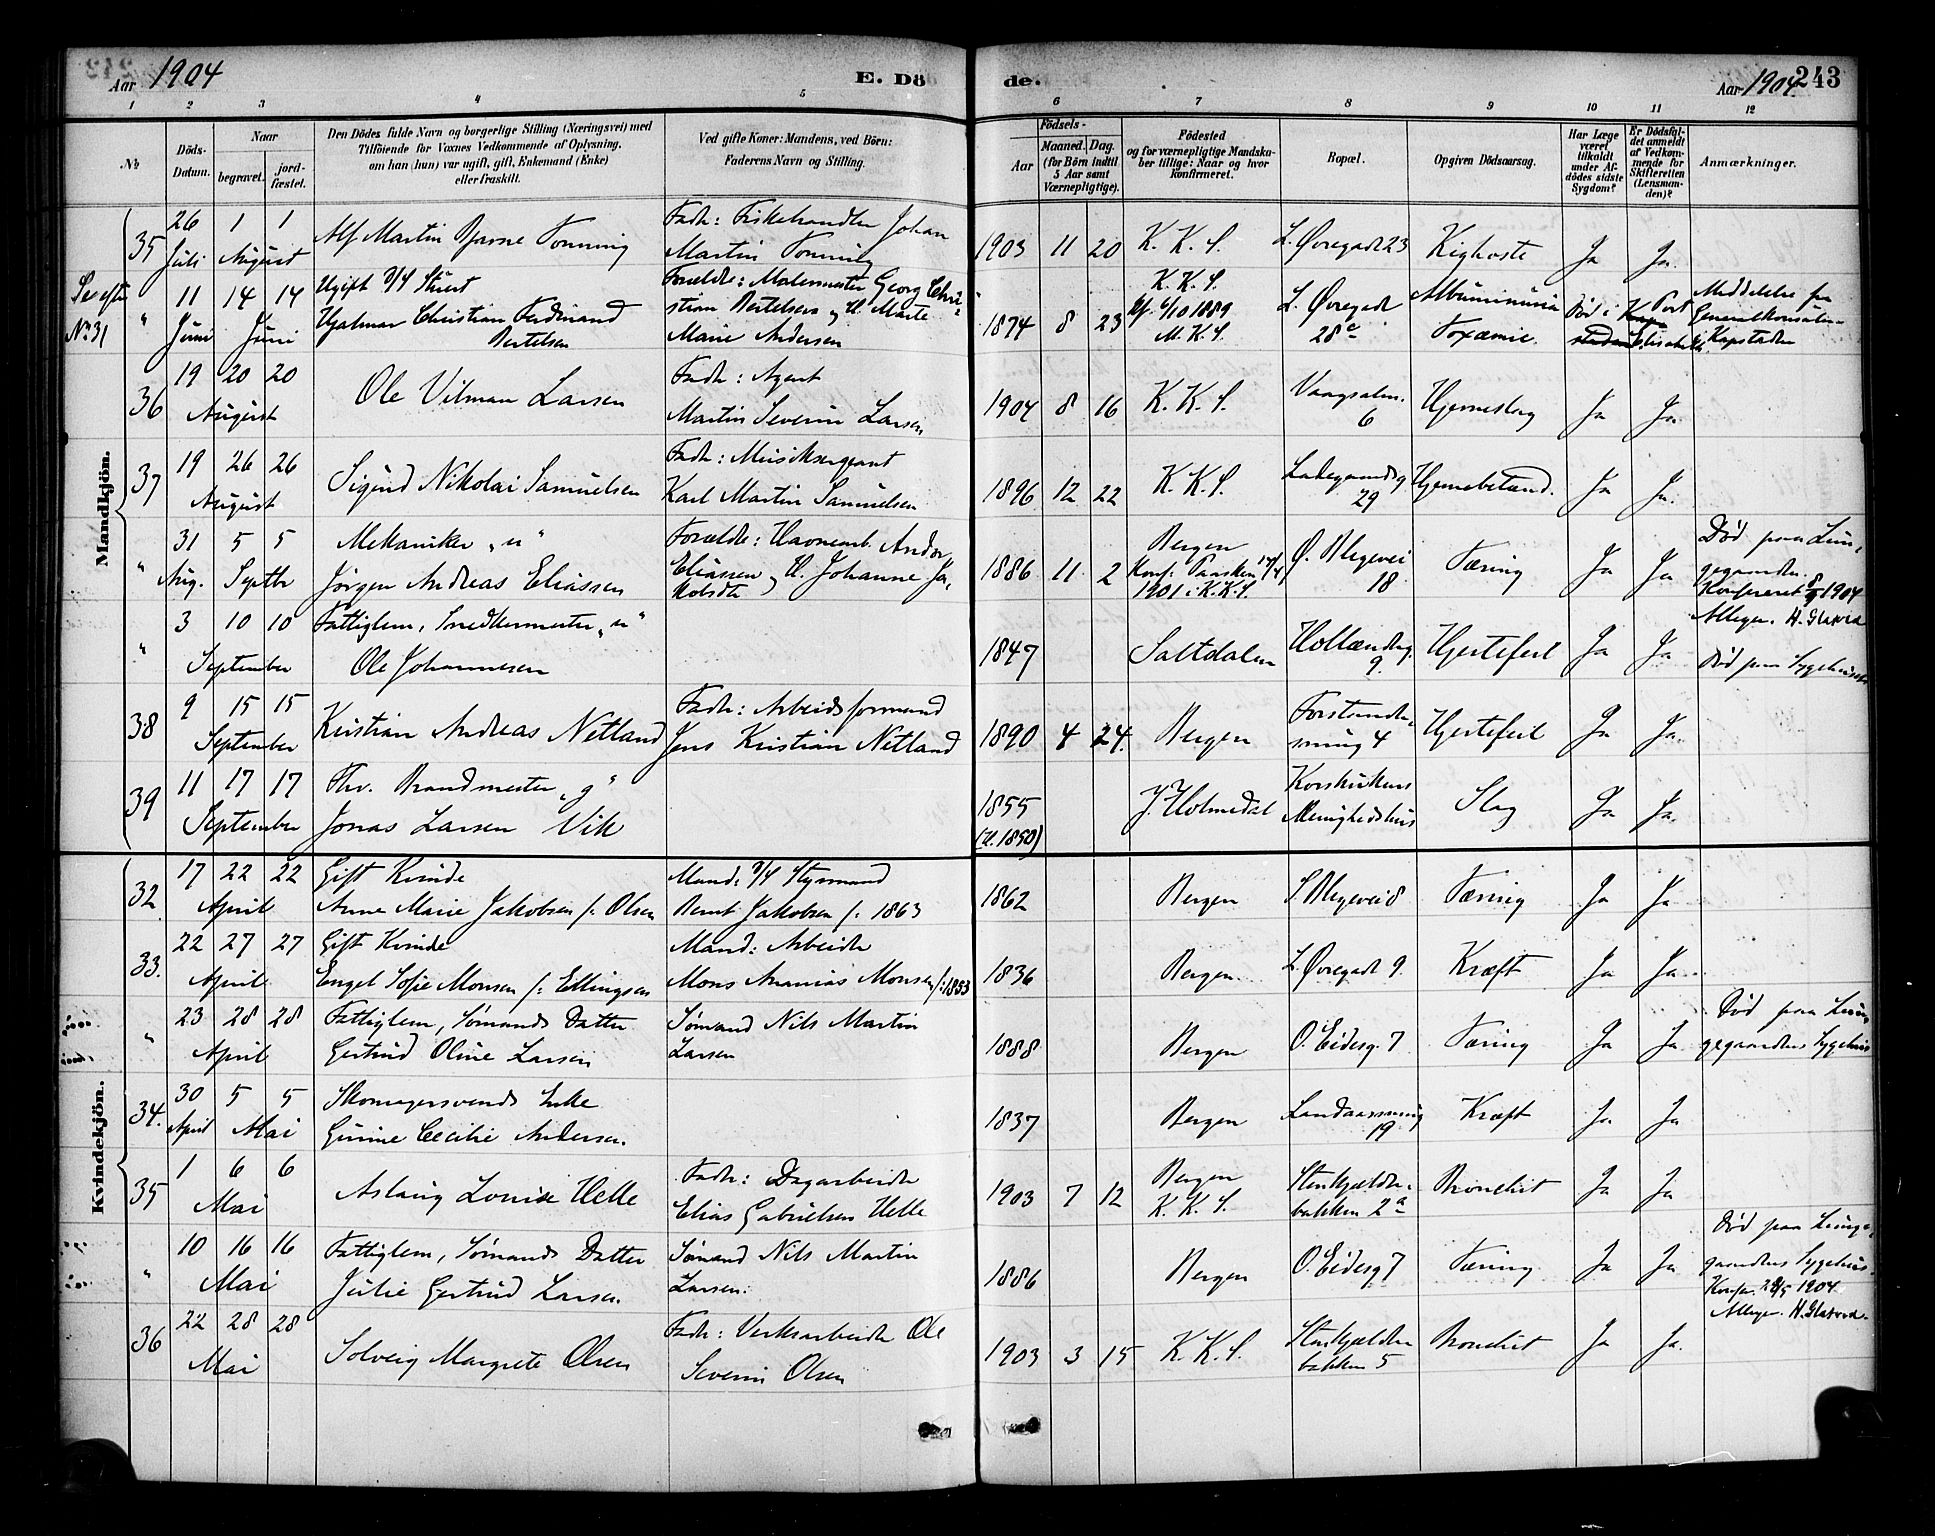 Aar 1904
E. Dö
de.
Aar 1904 243
1 2 3 4 5 6 7 8 9 10 11 12
No
Döds-
Datum.
Naar
begravet.
jord-
fæstet.
Den Dödes fulde Navn og borgerlige Stilling (Næringsvei) med
Tilföiende for Voxnes Vedkommende af Oplysning,
om han (hun) var ugift, gift, Enkemand (Enke)
eller fraskilt.
Ved gifte Koner: Mandens, ved Börn:
Faderens Navn og Stilling.
Födsels-
Aar
Maaned. Dag.
(for Börn indtil
5 Aar samt
Værnepligtige).
Födested
og for værnepligtige Mandska-
ber tillige: Naar og hvor
konfirmeret.
Bopæl.
Opgiven Dödsaarsag.
Har Læge
været
tilkaldt
under Af-
dödes sidste
Sygdom?
Er Dödsfal-
det anmeldt
af Vedkom-
mende for
Skifteretten
(Lensman-
den)?
Anmærkninger.
Mandkjön.
35 26 Juli 1 1 August
Alf Martin Bjarne Tonning
Fader: Fiskehandler Johan
Martin Tonning
1903 11 20 K. K. S. L. Øvregade 23 Kighoste Ja Ja
Se efter
No 31
" 11 Juni 14 14 Juni
Ugift Stuert
Hjalmar Christian Ferdinand
Bertelsen
Forældre: Malermester Georg Chri-
stian Bertelsen og H. Marte
Marie Andersen
1874 8 23 K. K. S.
6/10 1889
M. K. S.
L. Øvregade
28c
Albuminuria
Toxæmie.
Død i Port
Elisabeth
Meddelelse fra
Generalkonsulen
i Kapstaden
36 19 20 20 August
Ole Vilman Larsen
Fader: Agent
Martin Severin Larsen
1904 8 16 K. K. S. 6 Hjerneslag Ja Ja
37 19 26 26 August
Sigurd Nikolai Samuelsen
Fader: Musiksergeant
Karl Martin Samuelsen
1896 12 22 K. K. S. Ladegaardsg
29 Hjernebetænd. Ja Ja
" 31 Aug. 5 5 Septbr
Mekaniker "u"
Jörgen Andreas Eliassen
Forældre: Havnearb. Anders
Eliassen og H. Johanne Ja-
kobsdtr
1886 11 2 Bergen
Konf: Paasken 14/4
1901 i K. K. S.
Ø. Blegevei
18 Tæring Ja Ja
Død paa Lun-
gegaarden.
Konfereret 8/9 1904
" 3 10 10 September
Fattiglem, Snedkermester "u"
Ole Johannesen
1847 Saltdalen Hollænderg.
9. Hjertefeil Ja Ja Død paa Sygehuset
38 9 15 15 September
Kristian Andreas Netland
Fader: Arbeidsformand
Jens Kristian Netland
1890 4 24. Bergen Forstander-
smug 4 Hjertefeil Ja Ja
39 11 17 17 September
Fhv. Brandmester "g"
Jonas Larsen Vik
1855
(H. 1850)
Y. Holmedal Korskirkens
Menighedshus Slag Ja Ja
Kvindekjön.
32 17 22 22 April
Gift Kvinde
Anne Marie Jakobsen f: Olsen
Mand: Styrmand
Bernt Jakobsen f: 1863
1862 Bergen S. Blegevei 8 Tæring Ja Ja
33. 22 27 27 April
Gift Kvinde
Engel Sofie Monsen f: Ellingsen
Mand: Arbeider
Mons Ananias Monsen f: 1853
1836 Bergen L. Øvregade 9. Kræft Ja Ja
" 23 28 28 April
Fattiglem, Sömands Datter
Gertrud Oline Larsen
Sömand Nils Martin
Larsen
1888 Bergen O. Eidesg. 7 Tæring Ja Ja
Död paa Lun-
gegaardens Sygehus
34. 30 April 5 5 Mai
Skomagersvends Enke
Gurine Cecilie Andersen.
1837 Bergen Landaassmug
19 Kræft Ja Ja
35 1 6 6 Mai
Aslaug Louise Helle
Fader: Dagarbeider
Elias Gabrielsen Helle
1903 7 12 Bergen
K. K. S. Stenkjælder-
bakken 2a Bronchit Ja Ja
" 10 16 16 Mai
Fattiglem, Sömands Datter
Julie Gertrud Larsen
Sömand Nils Martin
Larsen.
1886 Bergen O. Eidesg. 7 Tæring Ja Ja
Död paa Lunge-
gaardens Sygehus.
Konfer. 28/5 1904
36 22 28 28 Mai
Solveig Margrete Olsen
Fader: Verksarbeider Ole
Severin Olsen
1903 3 15 K. K. S. Stenkjælder
bakken 5 Bronchit Ja Ja